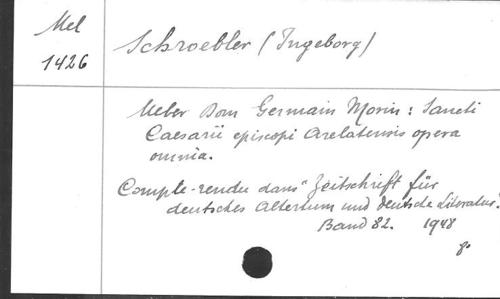 Mel
1426
Schroebler (Ingeborg)
Ueber Dom Germain Morin : Sancti
Caesarii episcopi Arelatensis opera
omnia.
Compte-rendu dans "Zeitschrift für
deutsches Altertum und deutsche Literatur".
Band 82. 1948
8°